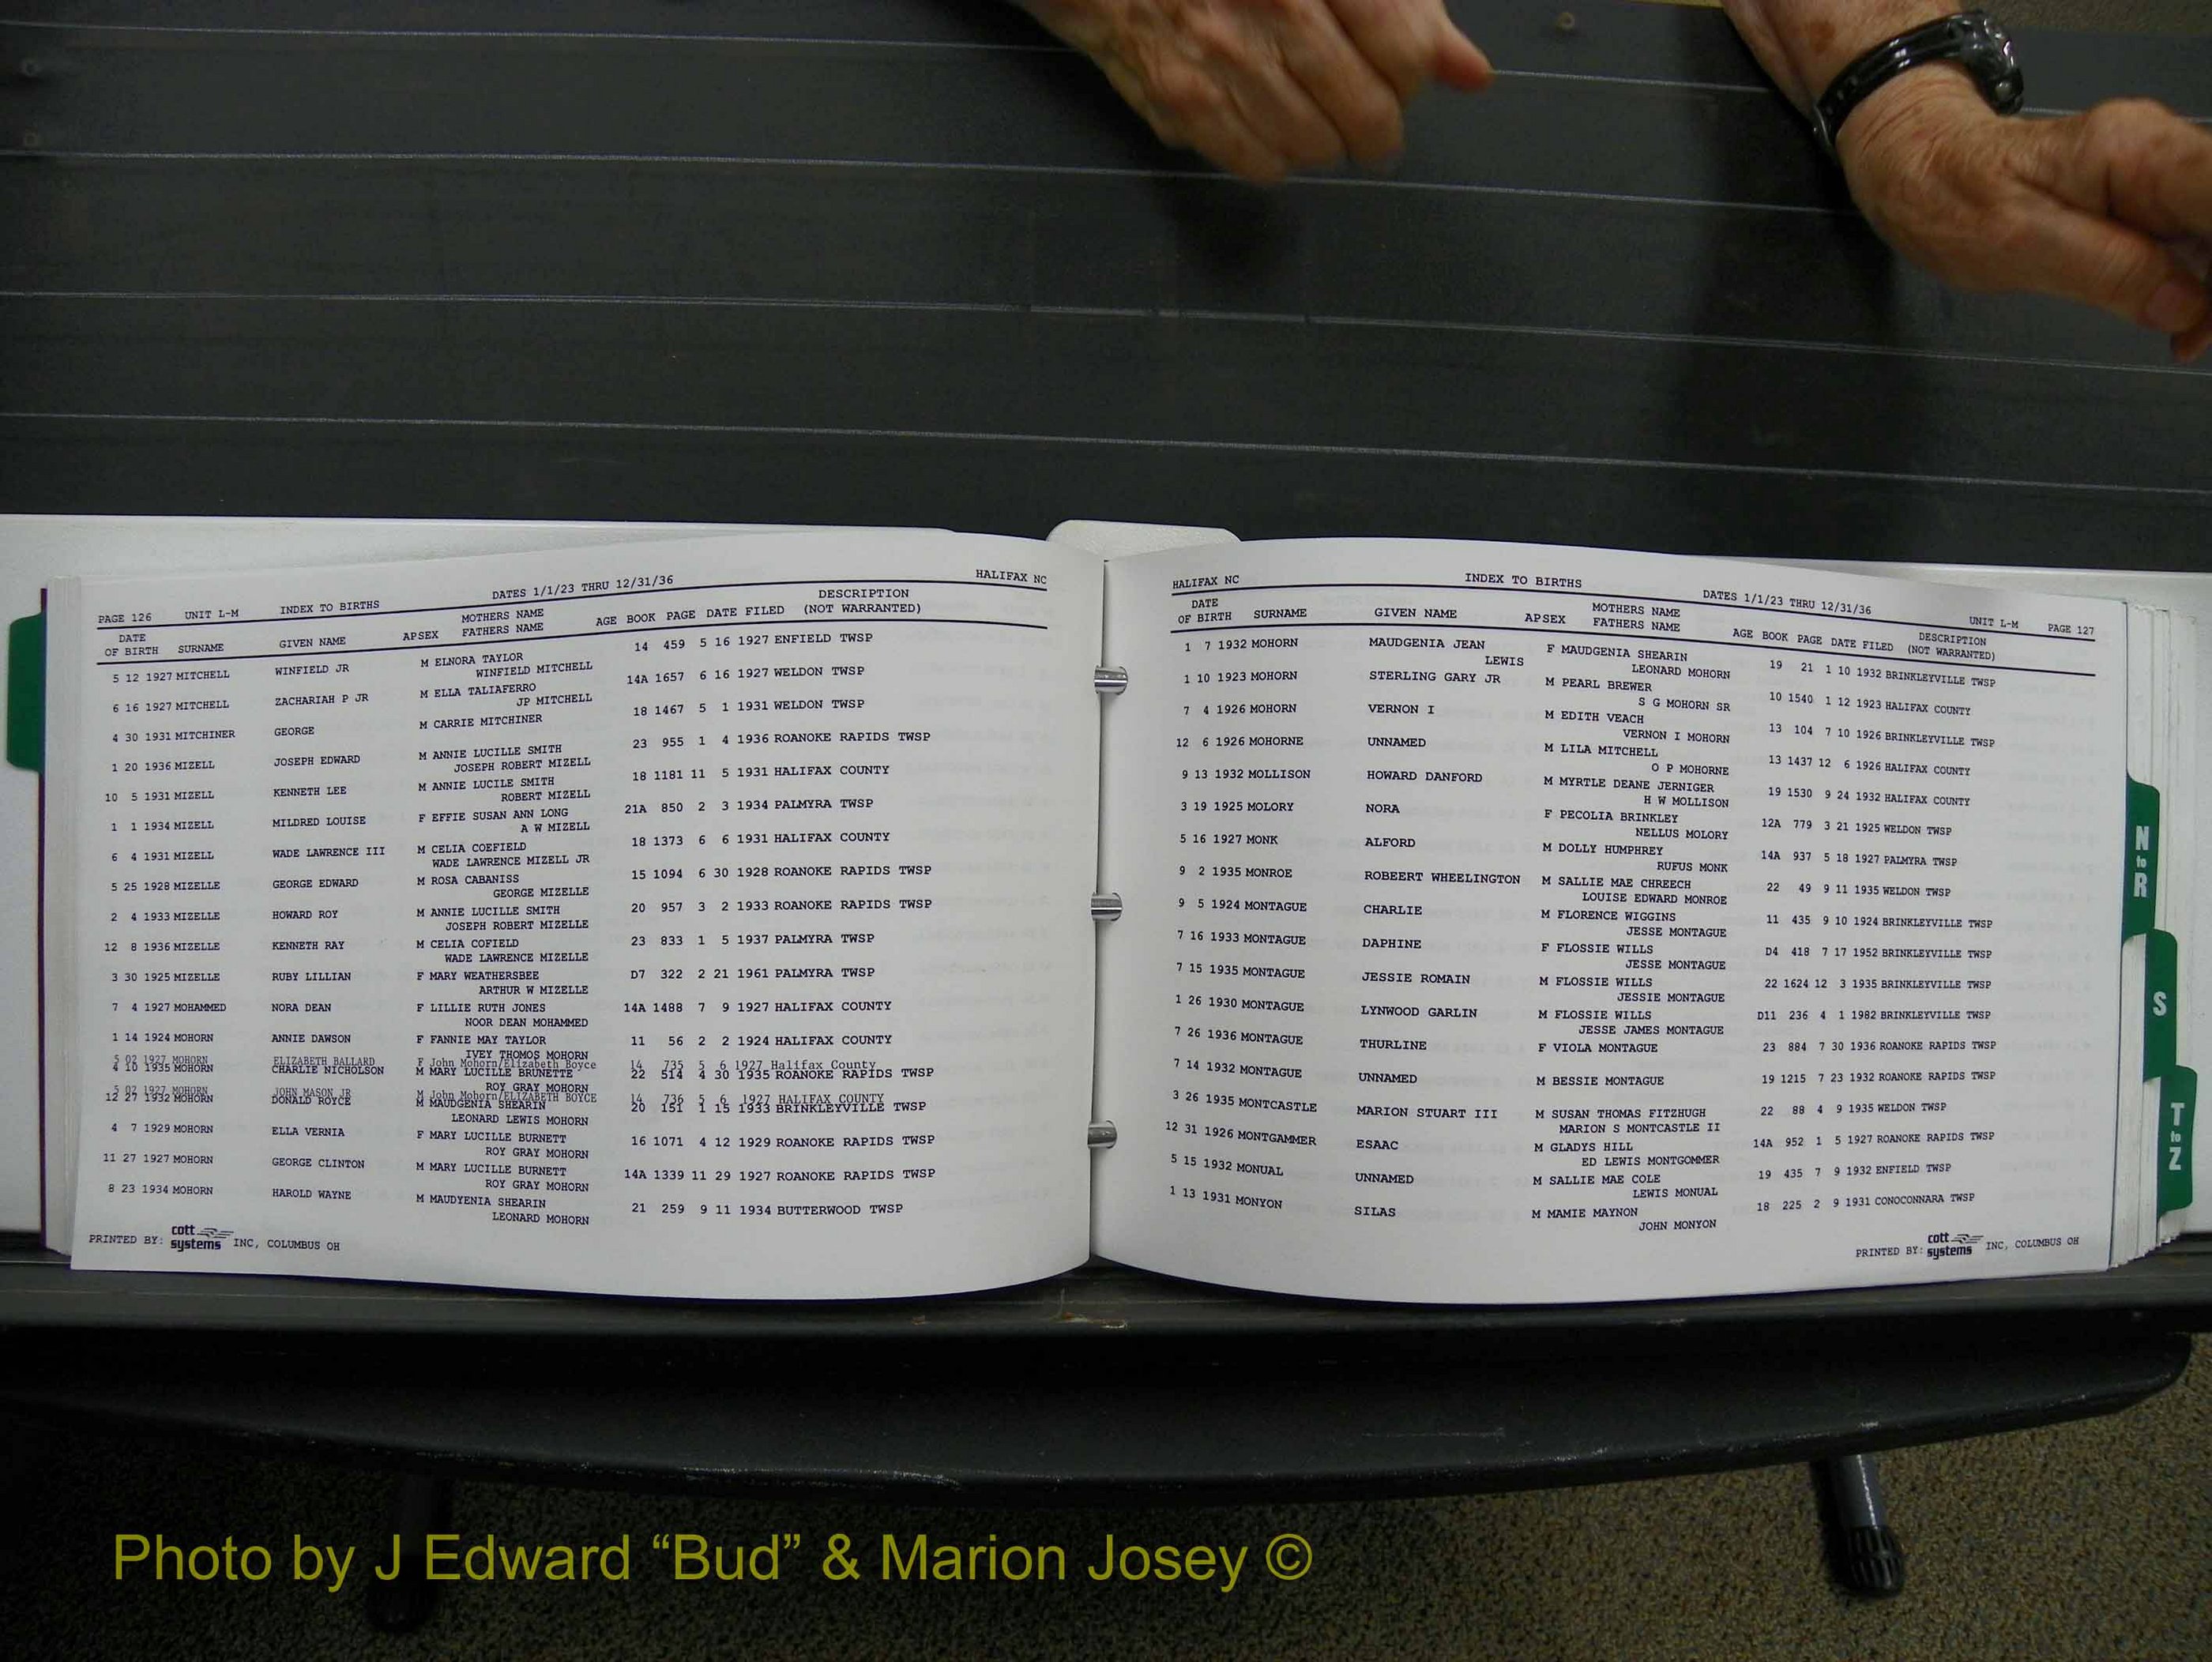 PAGE 126 UNIT L-M INDEX TO BIRTHS DATES 1/1/23 THRU 12/31/36 HALIFAX NC
DATE MOTHERS NAME DESCRIPTION
OF BIRTH SURNAME GIVEN NAME APSEX FATHERS NAME AGE BOOK PAGE DATE FILED (NOT WARRANTED)
5 12 1927 MITCHELL WINFIELD JR M ELNORA TAYLOR 14 459 5 16 1927 ENFIELD TWSP
WINFIELD MITCHELL
6 16 1927 MITCHELL ZACHARIAH P JR M ELLA TALIAFERRO 14A 1657 6 16 1927 WELDON TWSP
JP MITCHELL
4 30 1931 MITCHINER GEORGE M CARRIE MITCHINER 18 1467 5 1 1931 WELDON TWSP
1 20 1936 MIZELL JOSEPH EDWARD M ANNIE LUCILLE SMITH 23 955 1 4 1936 ROANOKE RAPIDS TWSP
JOSEPH ROBERT MIZELL
10 5 1931 MIZELL KENNETH LEE M ANNIE LUCILE SMITH 18 1181 11 5 1931 HALIFAX COUNTY
ROBERT MIZELL
1 1 1934 MIZELL MILDRED LOUISE F EFFIE SUSAN ANN LONG 21A 850 2 3 1934 PALMYRA TWSP
A W MIZELL
6 4 1931 MIZELL WADE LAWRENCE III M CELIA COEFIELD 18 1373 6 6 1931 HALIFAX COUNTY
WADE LAWRENCE MIZELL JR
5 25 1928 MIZELLE GEORGE EDWARD M ROSA CABANISS 15 1094 6 30 1928 ROANOKE RAPIDS TWSP
GEORGE MIZELLE
2 4 1933 MIZELLE HOWARD ROY M ANNIE LUCILLE SMITH 20 957 3 2 1933 ROANOKE RAPIDS TWSP
JOSEPH ROBERT MIZELLE
12 8 1936 MIZELLE KENNETH RAY M CELIA COFIELD 23 833 1 5 1937 PALMYRA TWSP
WADE LAWRENCE MIZELLE
3 30 1925 MIZELLE RUBY LILLIAN F MARY WEATHERSBEE D7 322 2 21 1961 PALMYRA TWSP
ARTHUR W MIZELLE
7 4 1927 MOHAMMED NORA DEAN F LILLIE RUTH JONES 14A 1488 7 9 1927 HALIFAX COUNTY
NOOR DEAN MOHAMMED
1 14 1924 MOHORN ANNIE DAWSON F FANNIE MAY TAYLOR 11 56 2 2 1924 HALIFAX COUNTY
IVEY THOMOS MOHORN
5 02 1927 MOHORN ELIZABETH BALLARD F John Mohorn/Elizabeth Boyce 14 735 5 6 1927 Halifax County
4 10 1935 MOHORN CHARLIE NICHOLSON M MARY LUCILLE BRUNETTE 22 514 4 30 1935 ROANOKE RAPIDS TWSP
ROY GRAY MOHORN
5 02 1927 MOHORN JOHN MASON JR M John Mohorn/ELIZABETH BOYCE 14 736 5 6 1927 HALIFAX COUNTY
12 27 1932 MOHORN DONALD ROYCE M MAUDGENIA SHEARIN 20 151 1 15 1933 BRINKLEYVILLE TWSP
LEONARD LEWIS MOHORN
4 7 1929 MOHORN ELLA VERNIA F MARY LUCILLE BURNETT 16 1071 4 12 1929 ROANOKE RAPIDS TWSP
ROY GRAY MOHORN
11 27 1927 MOHORN GEORGE CLINTON M MARY LUCILLE BURNETT 14A 1339 11 29 1927 ROANOKE RAPIDS TWSP
ROY GRAY MOHORN
8 23 1934 MOHORN HAROLD WAYNE M MAUDYENIA SHEARIN 21 259 9 11 1934 BUTTERWOOD TWSP
LEONARD MOHORN
PRINTED BY: cott systems INC, COLUMBUS OH
HALIFAX NC INDEX TO BIRTHS DATES 1/1/23 THRU 12/31/36 UNIT L-M PAGE 127
DATE MOTHERS NAME DESCRIPTION
OF BIRTH SURNAME GIVEN NAME APSEX FATHERS NAME AGE BOOK PAGE DATE FILED (NOT WARRANTED)
1 7 1932 MOHORN MAUDGENIA JEAN F MAUDGENIA SHEARIN 19 21 1 10 1932 BRINKLEYVILLE TWSP
LEWIS LEONARD MOHORN
1 10 1923 MOHORN STERLING GARY JR M PEARL BREWER 10 1540 1 12 1923 HALIFAX COUNTY
S G MOHORN SR
7 4 1926 MOHORN VERNON I M EDITH VEACH 13 104 7 10 1926 BRINKLEYVILLE TWSP
VERNON I MOHORN
12 6 1926 MOHORNE UNNAMED M LILA MITCHELL 13 1437 12 6 1926 HALIFAX COUNTY
O P MOHORNE
9 13 1932 MOLLISON HOWARD DANFORD M MYRTLE DEANE JERNIGER 19 1530 9 24 1932 HALIFAX COUNTY
H W MOLLISON
3 19 1925 MOLORY NORA F PECOLIA BRINKLEY 12A 779 3 21 1925 WELDON TWSP
NELLUS MOLORY
5 16 1927 MONK ALFORD M DOLLY HUMPHREY 14A 937 5 18 1927 PALMYRA TWSP
RUFUS MONK
9 2 1935 MONROE ROBEERT WHEELINGTON M SALLIE MAE CHREECH 22 49 9 11 1935 WELDON TWSP
LOUISE EDWARD MONROE
9 5 1924 MONTAGUE CHARLIE M FLORENCE WIGGINS 11 435 9 10 1924 BRINKLEYVILLE TWSP
JESSE MONTAGUE
7 16 1933 MONTAGUE DAPHINE F FLOSSIE WILLS D4 418 7 17 1952 BRINKLEYVILLE TWSP
JESSE MONTAGUE
7 15 1935 MONTAGUE JESSIE ROMAIN M FLOSSIE WILLS 22 1624 12 3 1935 BRINKLEYVILLE TWSP
JESSIE MONTAGUE
1 26 1930 MONTAGUE LYNWOOD GARLIN M FLOSSIE WILLS D11 236 4 1 1982 BRINKLEYVILLE TWSP
JESSE JAMES MONTAGUE
7 26 1936 MONTAGUE THURLINE F VIOLA MONTAGUE 23 884 7 30 1936 ROANOKE RAPIDS TWSP
7 14 1932 MONTAGUE UNNAMED M BESSIE MONTAGUE 19 1215 7 23 1932 ROANOKE RAPIDS TWSP
3 26 1935 MONTCASTLE MARION STUART III M SUSAN THOMAS FITZHUGH 22 88 4 9 1935 WELDON TWSP
MARION S MONTCASTLE II
12 31 1926 MONTGAMMER ESAAC M GLADYS HILL 14A 952 1 5 1927 ROANOKE RAPIDS TWSP
ED LEWIS MONTGOMMER
5 15 1932 MONUAL UNNAMED M SALLIE MAE COLE 19 435 7 9 1932 ENFIELD TWSP
LEWIS MONUAL
1 13 1931 MONYON SILAS M MAMIE MAYNON 18 225 2 9 1931 CONOCONNARA TWSP
JOHN MONYON
PRINTED BY: cott systems INC, COLUMBUS OH
N to R
S
T to Z
Photo by J Edward “Bud” & Marion Josey ©